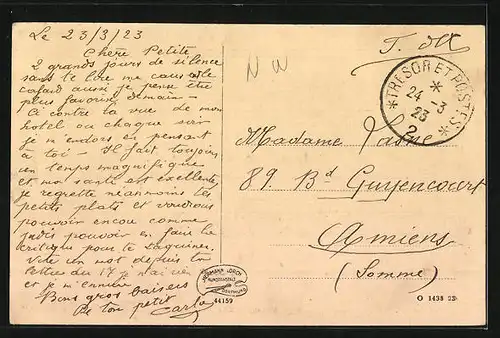 Le 23/3/23
Chère Petite
2 grands jours de silence
sans te lire me cause le
cafard aussi je pense être
plus favorisé demain -
Ci contre la vue de mon
hotel ou chaque soir
je m'endors en pensant
à toi - Il fait toujours
un temps magnifique
et ma santé est excellente,
je regrette néanmoins les
petits plats et voudrais
pouvoir encore comme
jadis pouvoir en faire la
critique pour te taquiner.
Vite un mot depuis ta
lettre du 17 je n'ai rien
et je m'ennuie
Bons gros baisers
De ton petit
Carlo
T. M
TRESOR ET POSTES
24 -3
23
2
Madame
89. Bd Guyencourt
Amiens
(Somme)
HERMANN LORCH
KUNSTANSTALT
DORTMUND
44159
O 1438 23